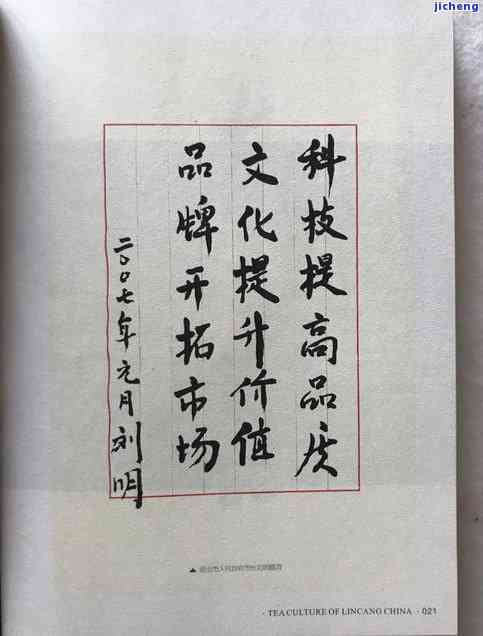 jicheng
科技提高品质
文化提升价值
品牌开拓市场
二〇〇七年元月刘明
· TEA CULTURE OF LINCANG CHINA · 021